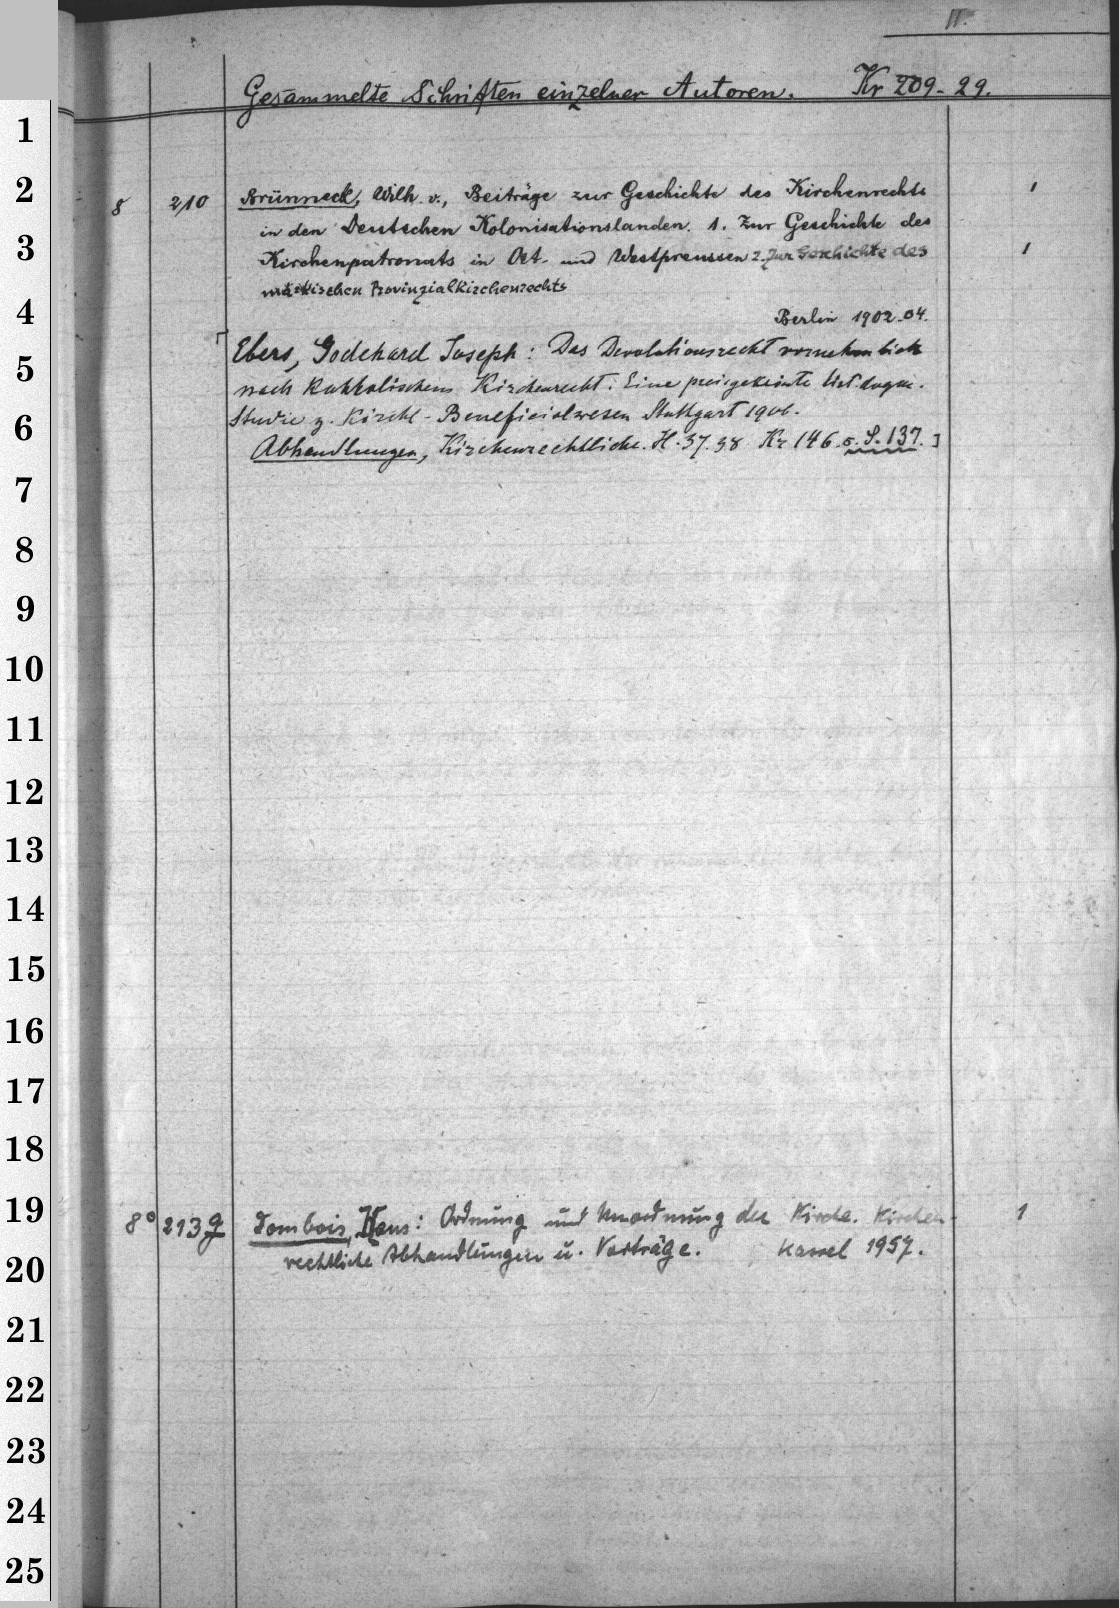 II.
Gesammelte Schriften einzelner Autoren. Kr 209-29.
1
2
3
4
5
6
7
8
9
10
11
12
13
14
15
16
17
18
19
20
21
22
23
24
25
8 210 Brünneck, Wilh. v., Beiträge zur Geschichte des Kirchenrechts 1
in den Deutschen Kolonisationslanden. 1. Zur Geschichte des
Kirchenpatronats in Ost- und Westpreussen 2. Zur Geschichte des 1
märkischen Provinzialkirchenrechts
Berlin 1902-04.
[Ebers, Godehard Joseph: Das Devolutionsrecht vornehmlich
nach katholischem Kirchenrecht. Eine preisgekrönte hist. dogm.
Studie z. kirchl. Beneficialwesen Stuttgart 1906.
Abhandlungen, Kirchenrechtliche. H. 37.38 Kr 146. s. S. 137.]
8° 213 g Dombois, Hans: Ordnung und Unordnung der Kirche. Kirchen- 1
rechtliche Abhandlungen u. Vorträge. Kassel 1957.